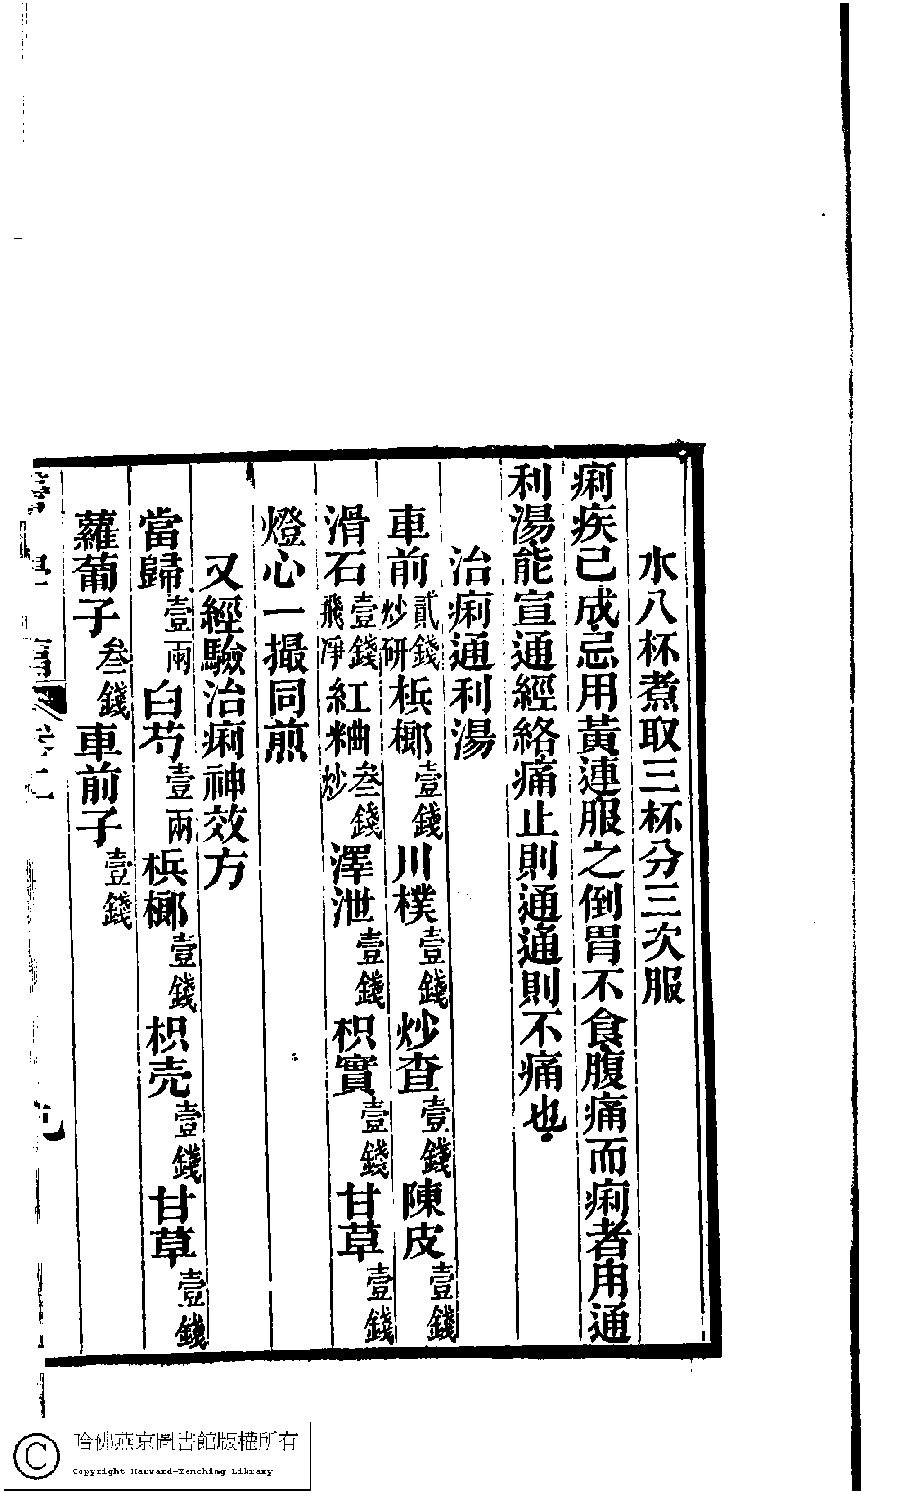 水八杯煮取三杯分三次服
痢疾已成忌用黃連服之倒胃不食腹痛而痢者用通
利湯能宣通經絡痛止則通通則不痛也
治痢通利湯
車前貳錢炒研梹榔壹錢川樸壹錢炒查壹錢陳皮壹錢
滑石壹錢飛淨紅粬叁錢炒澤泄壹錢枳實壹錢甘草壹錢
燈心一撮同煎
又經驗治痢神效方
當歸壹兩白芍壹兩梹榔壹錢枳壳壹錢甘草壹錢
蘿蔔子叁錢車前子壹錢
哈佛燕京圖書館版權所有
Copyright Harvard-Yenching Library